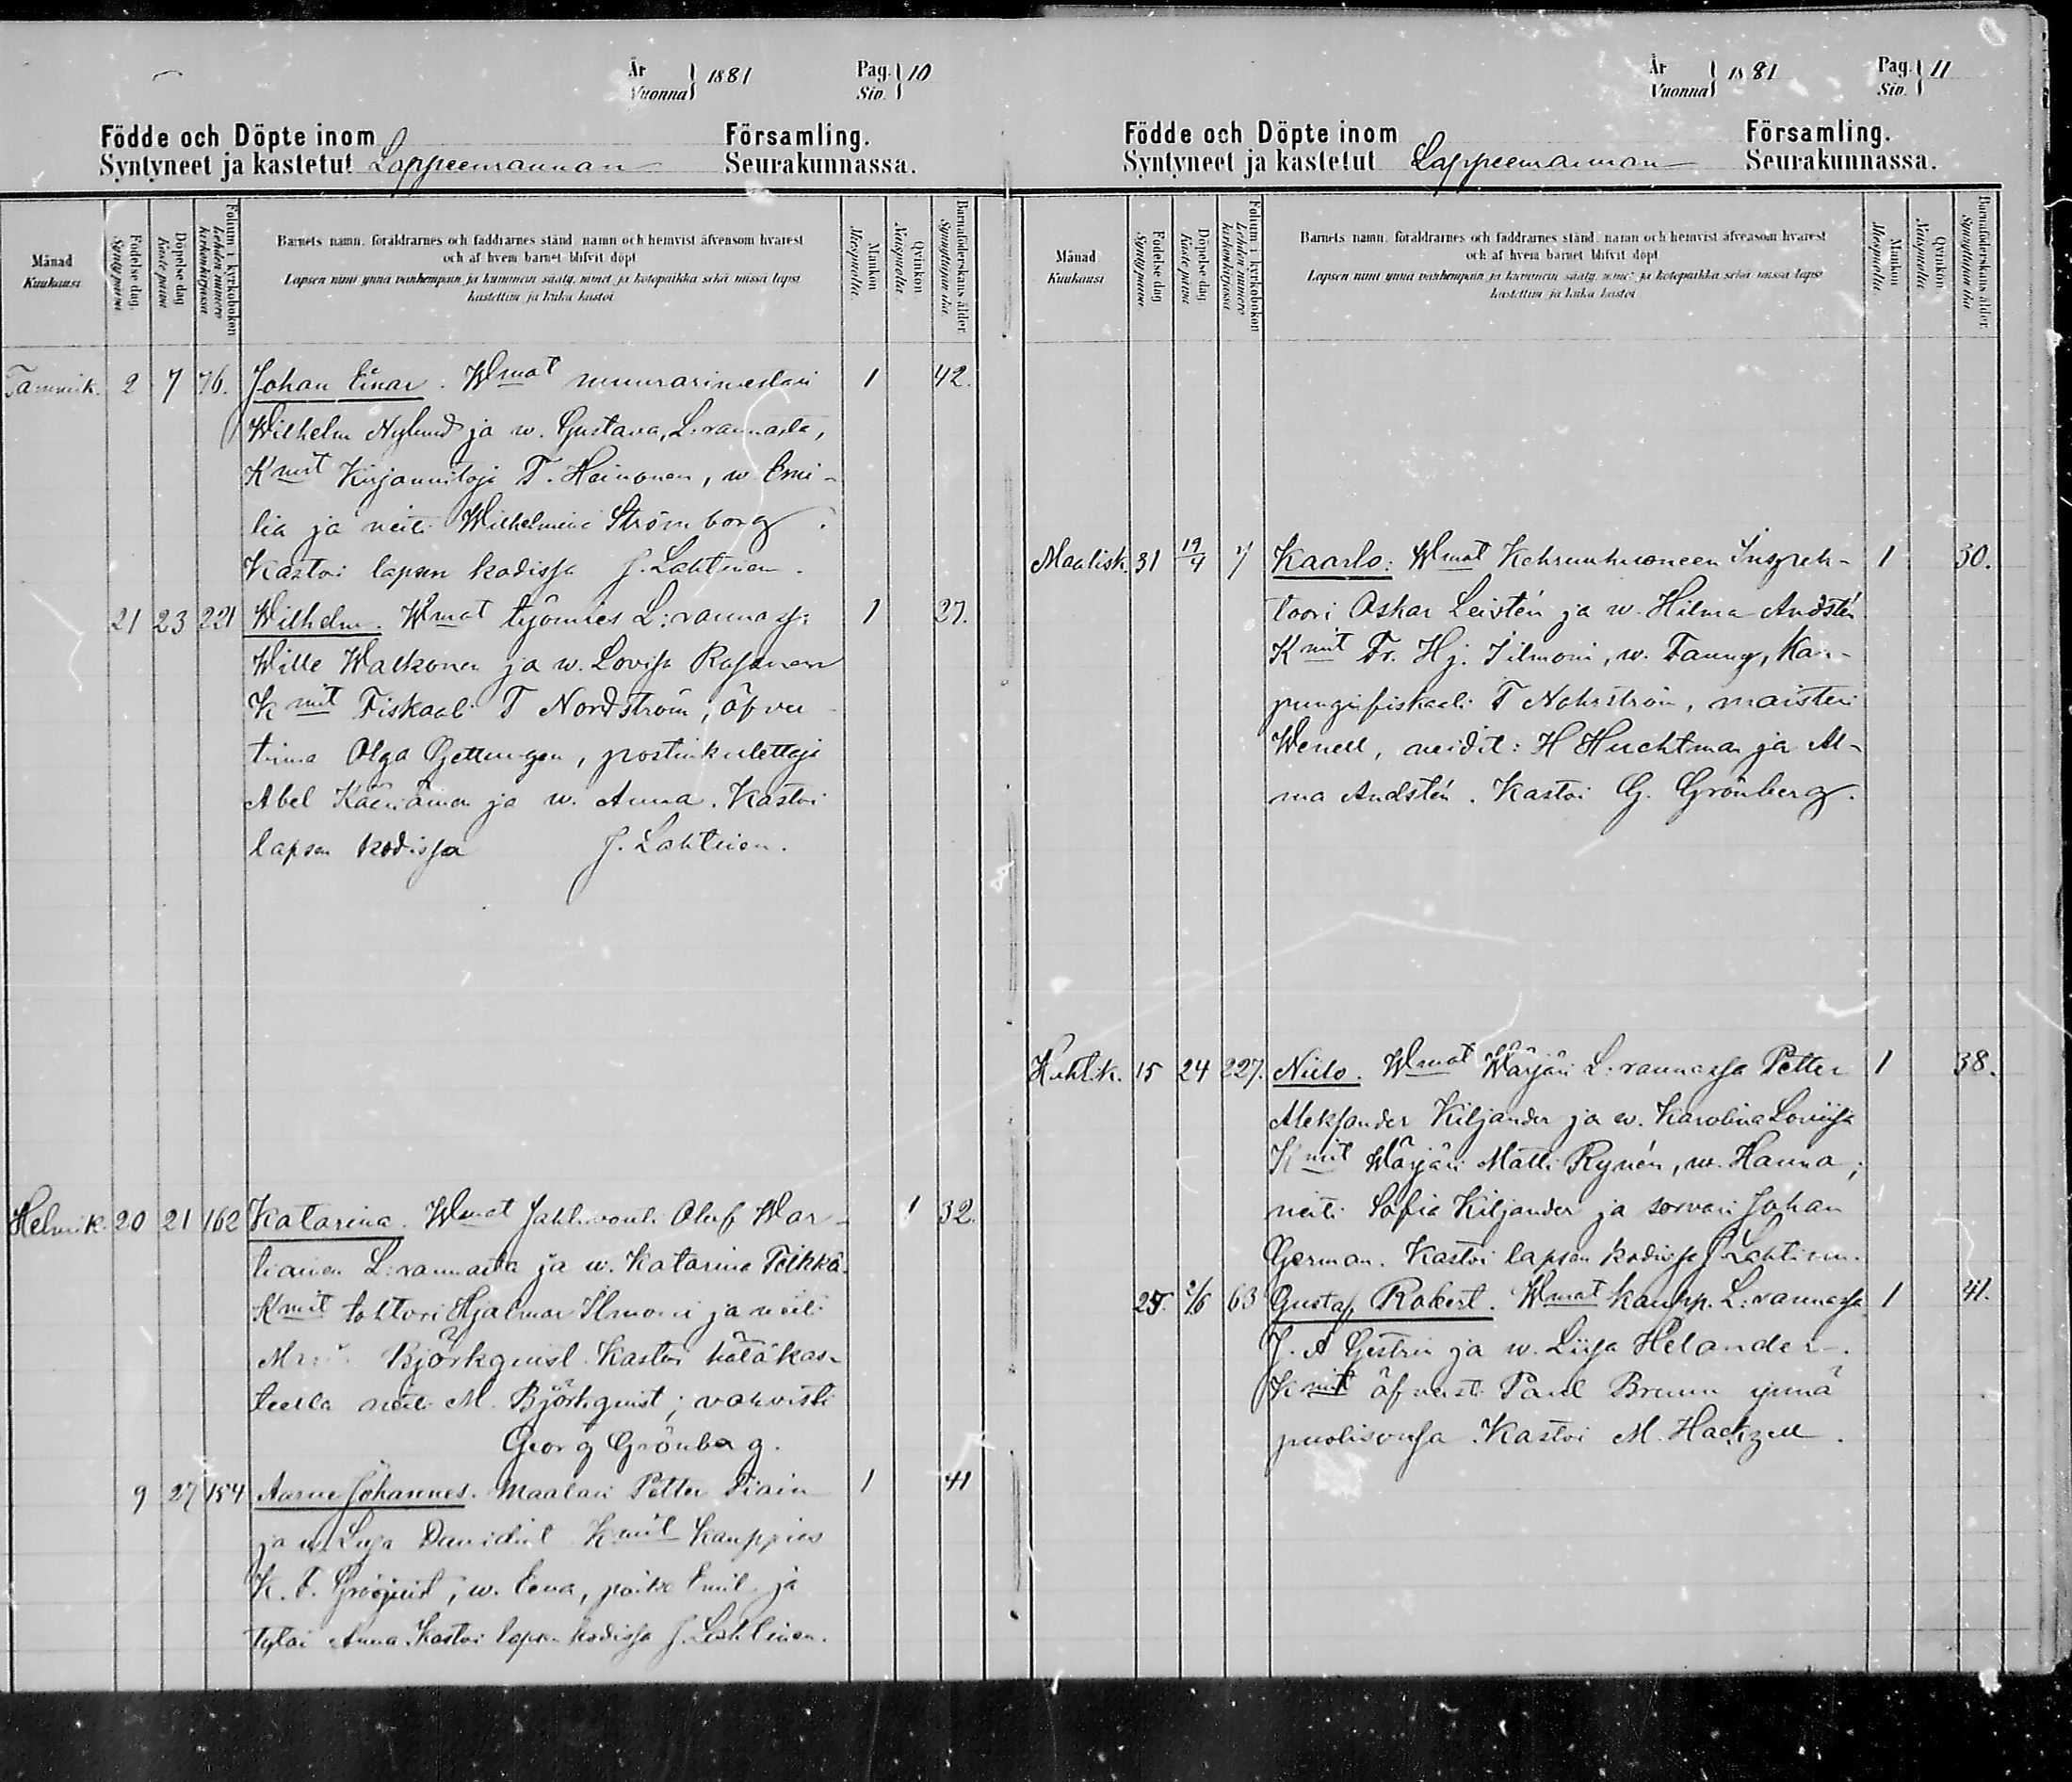 År Vuonna 1881 Pag. Siv. 10
Födde och Döpte inom Församling.
Syntyneet ja kastetut Lappeenrannan Seurakunnassa.
Månad Kuukausi
Födelse dag. Syntypäivä
Döpelse dag Kastepäivä
Folium i kyrkoboken Lehden numero kirkonkirjassa
Barnets namn, föräldrarnes och faddrarnes stånd, namn och hemvist äfvensom hvarest
och af hvem barnet blifvit döpt
Lapsen nimi ynnä vanhempain ja kummein sääty, nimet ja kotopaikka sekä missä lapsi
kastettiin ja kuka kastoi
Mankön Miespuolia
Qvinkön Naispuolia
Barnaföderskans ålder. Synnyttäjän ikä
Tammik. 2 7 76. Johan Einar. Wmat muurarimestari 1 42.
Wilhelm Nylund ja w. Gustava, L:rannasta,
Kmit Kirjannitoja T. Heinonen, w Emi-
lia ja neiti Wilhelmina Strömborg.
Kastoi lapsen kodissa J. Lahtinen.
21 23 221 Wilhelm. Wmat työmies L:rannassa 1 27.
Wille Walkonen ja w. Lovisa Rasanen
Kmit Fiskaali T Nordström, öfver
tinna Olga, postinkulettaja
Abel Kääriäinen ja w. Anna. Kastoi
lapsen kodissa J. Lahtinen.
Helmik. 20 21 162 Katarina. Wmat Jahtivouti Olof War- 1 32.
tiainen L:rannasta ja w. Katarina Pelkkä.
Kmit tohtori Hjalmar Ilmoni ja neiti
Björkquist. Kastoi hätäkas-
teella neiti M. Björkquist; vahvisti
Georg Grönberg.
9 27 154 Aarne Johannes. Maalari Petter Piain 1 41
ja w. Liisa Davidint Kmit Kauppias
K. F., w. Eeva, poika Emil ja
tytär Anna. Kastoi lapsen kodissa J. Lahtinen.
År Vuonna 1881 Pag. Siv. 11
Födde och Döpte inom Församling.
Syntyneet ja kastetut Lappeenrannan Seurakunnassa.
Månad Kuukausi
Födelse dag Syntypäivä
Döpelse dag Kastepäivä
Folium i kyrkoboken Lehden numero kirkonkirjassa
Barnets namn, föräldrarnes och faddrarnes stånd, namn och hemvist äfvensom hvarest
och af hvem barnet blifvit döpt
Lapsen nimi ynnä vanhempain ja kummein sääty, nimet ja kotopaikka sekä missä lapsi
kastettiin ja kuka kastoi
Mankön Miespuolia
Qvinkön Naispuolia
Barnaföderskans ålder. Synnyttäjän ikä
Maalisk. 31 19/4 7 Kaarlo: Wmat Kehruuhuoneen Inspek- 1 30.
toori Oskar Leistén ja w. Hilma Andstén
Kmit Tr. Hj. Ilmoni, w. Fanny, Kau-
punginfiskaali T Nohrström, maisteri
Wenell, neidit: H Huchtman ja Al-
ma Andstén. Kastoi G. Grönberg.
Huhtik. 15 24 227. Niilo. Wmat Wärjäri L:rannassa Petter 1 38.
Aleksander Kiljander ja w. Karolina Loviisa
Kmit Wärjäri Matti Rynén, w. Hanna;
neiti Sofia Kiljander ja sorvari Johan
German. Kastoi lapsen kodissa J Lahtinen.
25. 2/6 63 Gustaf Robert. Wmat kaupp. L:rannassa 1 41.
J. A Gestrin ja w. Liisa Helander.
Kmit öfversti Paul Bruun ynnä
puolisonsa. Kastoi M. Hackzell.